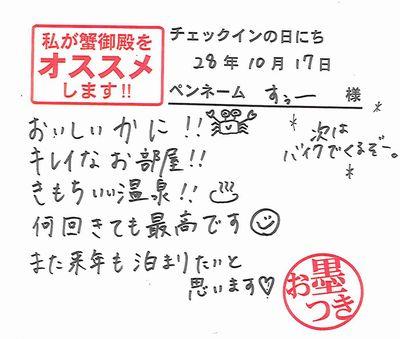 私が蟹御殿を
オススメ
します!!
チェックインの日にち
28年10月17日
ペンネーム すぅー 様
おいしいかに!!
キレイなお部屋!!
きもちいい温泉!!
何回きても最高です
また来年も泊まりたいと
思います♡
次は
バイクでくるぞー。
お墨
つき